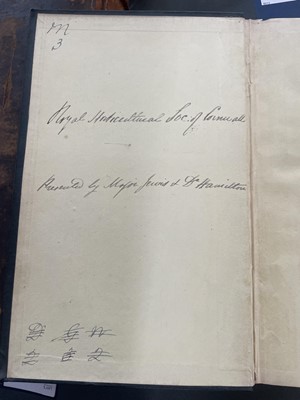 M
3
Royal Horticultural Soc. of Cornwall
Presented by Major Jervis & Dr Hamilton